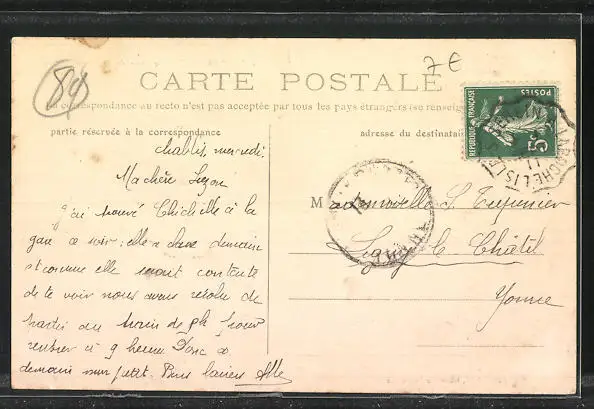 84
7€
CARTE POSTALE
La correspondance au recto n'est pas acceptée par tous les pays étrangers (se renseig
partie réservée à la correspondance
adresse du destinatai
RÉPUBLIQUE FRANÇAISE
POSTES
5
LAROCHE
Chablis, mercredi
Ma chère Suzon
J'ai trouvé Chichille à la
gare ce soir; elle a chez demain
et comme elle serait contente
de te voir nous avons résolu de
partir au train de 4h pour
rentrer à 9 heures. Donc à
demain mon petit. Bons baisers
Mademoiselle S.
Ligny le Châtel
Yonne